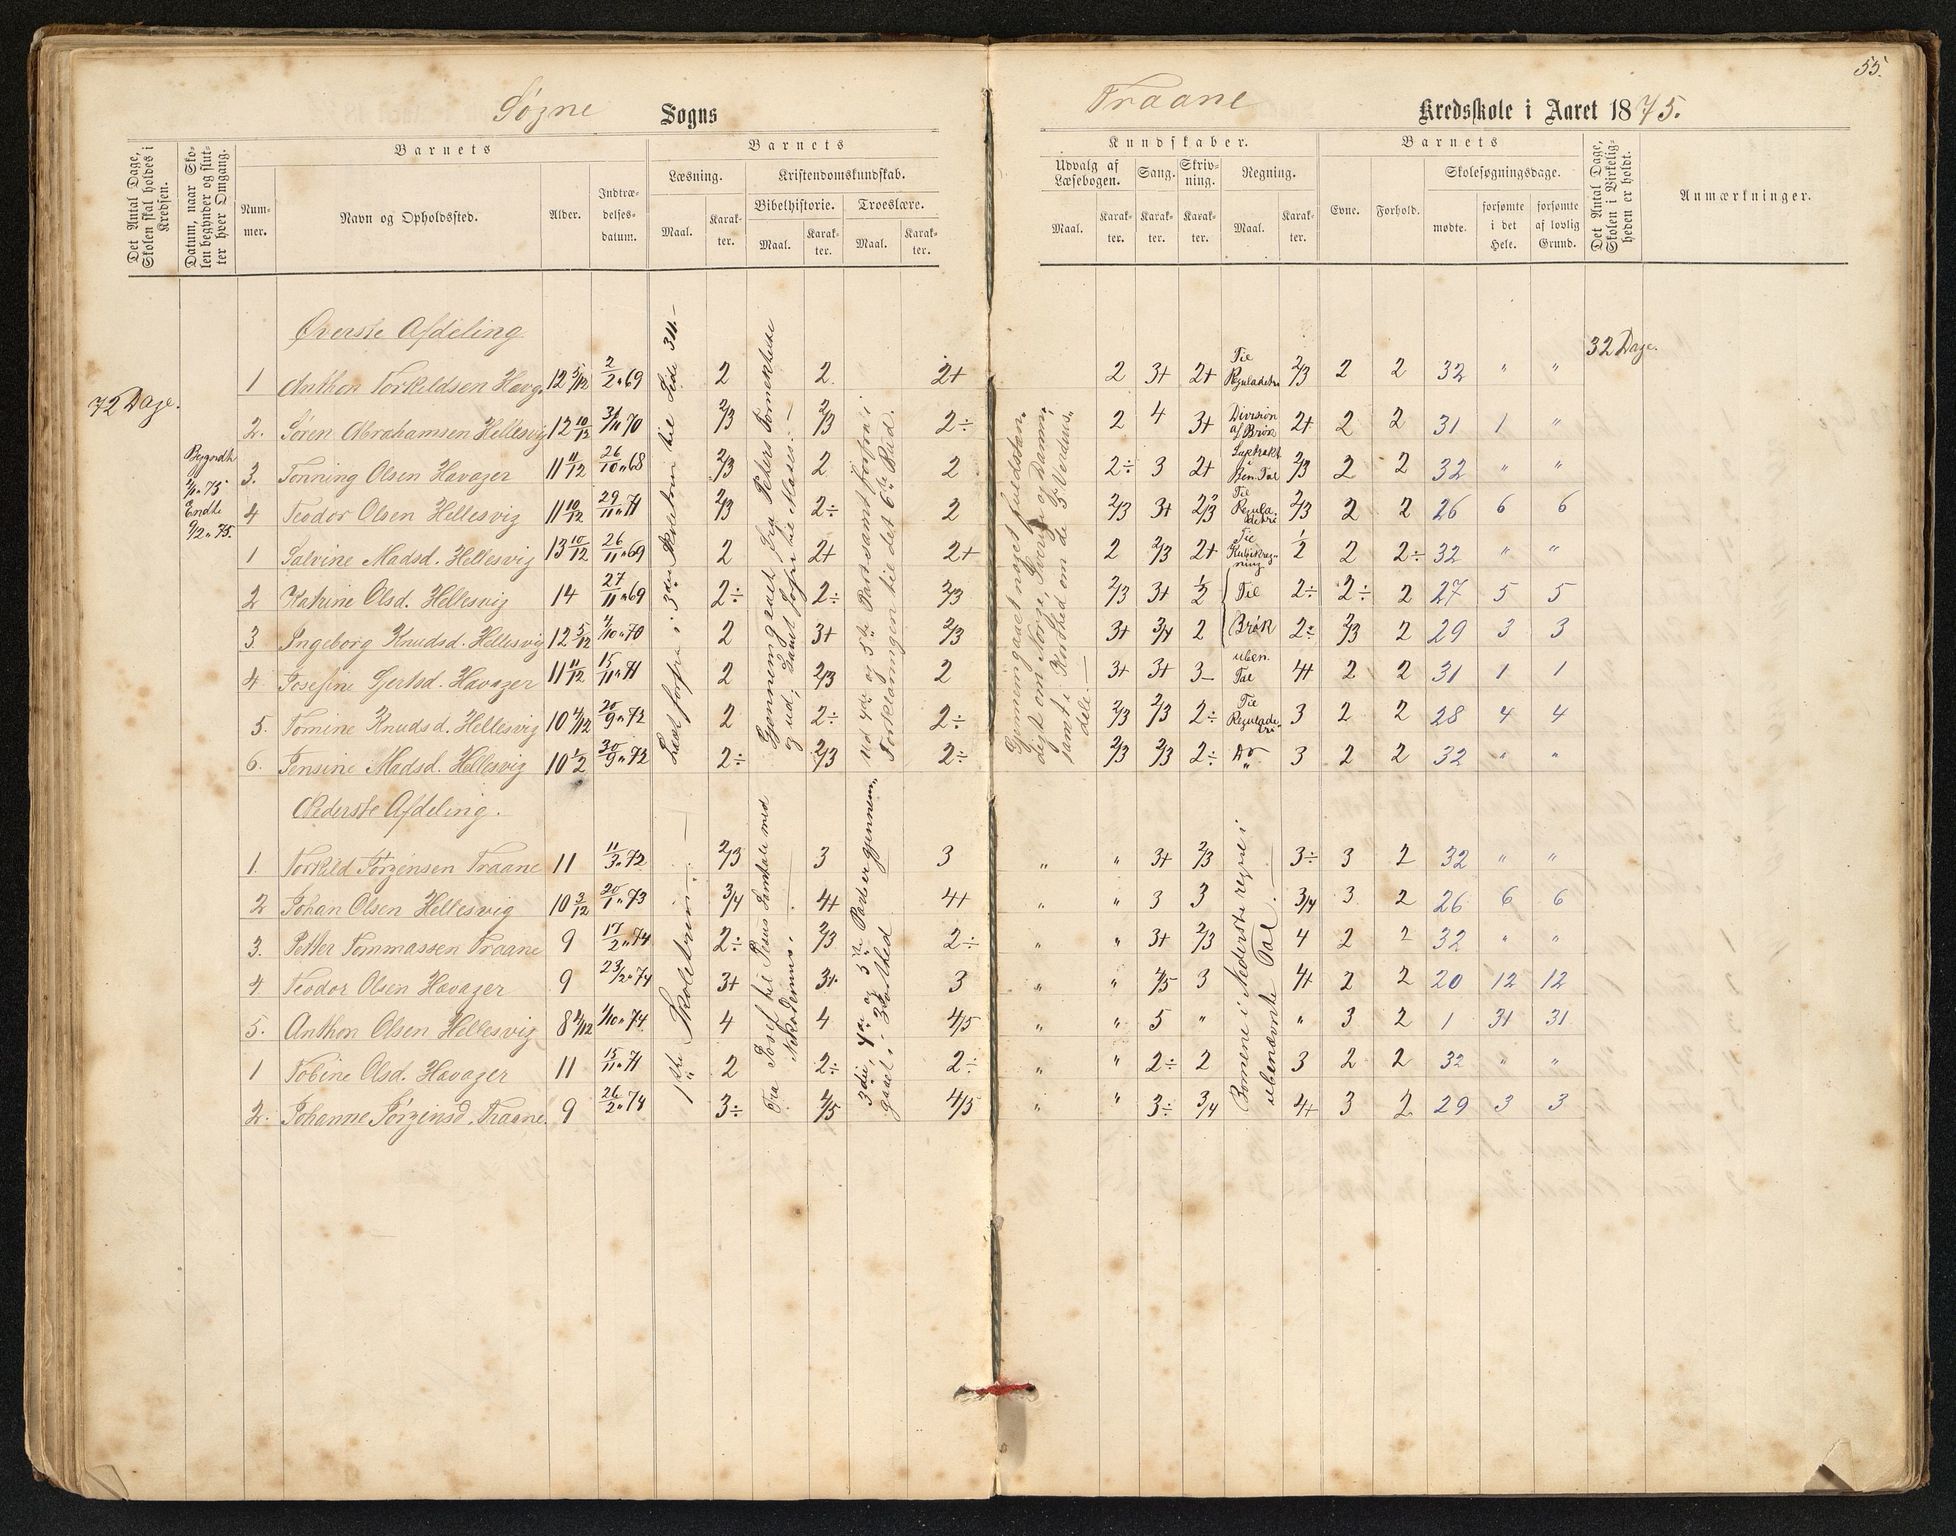 55.
Søgne Sogns
Traane Kredsskole i Aaret 1875.
Det Antal Dage, Skolen skal holdes i Kredsen.
Datum, naar Skolen begynder og slutter hver Omgang.
Barnets
Nummer.
Navn og Opholdssted.
Alder.
Indtrædelsesdatum.
Barnets
Læsning.
Maal.
Karakter.
Kristendomskundskab.
Bibelhistorie.
Maal.
Karakter.
Troeslære.
Maal.
Karakter.
Kundskaber.
Udvalg af Læsebogen.
Maal.
Karakter.
Sang.
Karakter.
Skrivning.
Karakter.
Regning.
Maal.
Karakter.
Barnets
Evne.
Forhold.
Skolesøgningsdage.
mødte.
forsømte i det Hele.
forsømte af lovlig Grund.
Det Antal Dage, Skolen i Virkeligheden er holdt.
Anmærkninger.
72 Dage.
32 Dage.
Øverste Afdeling
1 Anthon Torkildsen Havag. 12 5/12 2/2 69 2 2 2+ 2 3+ 2+ Til Reguladetri 2/3 2 2 32 " "
2. Søren Abrahamsen Hellesvig 12 10/12 70 2/3 2/3 2÷ 2 4 3+ Division af Brøk 2+ 2 2 31 1 "
3. Tønning Olsen Havager 11 11/12 26/10 68 2/3 2 2 2÷ 3 2+ Ben. Tal 2/3 2 2 32 " "
4 Teodor Olsen Hellesvig 11 10/12 29/11 71 2/3 2÷ 2 2/3 3+ 2/3 Til Reguladetri 2/3 2 2 26 6 6
1 Salvine Madsd. Hellesvig 13 10/12 26/11 69 2 2+ 2+ 2 2/3 2+ Til 1/2 2 2÷ 32 " "
2 Katrine Olsd. Hellesvig 14 27/11 69 2÷ 2÷ 2/3 2/3 3+ 1/2 Til 2÷ 2÷ 2 27 5 5
3 Ingeborg Knudsd. Hellesvig 12 5/12 70 2 3+ 2/3 3+ 3/4 2 Brøk 2÷ 2/3 2 29 3 3
4 Josefine Gjertsd. Havager 11 11/12 15/11 71 2 2/3 2 3+ 3+ 3- uben. Tal 4+ 2 2 31 1 1
5. Tomine Knudsd. Hellesvig 10 4/12 20/9 72 2 2÷ 2÷ 2/3 2/3 2÷ Til Reguladetri 3 2 2 28 4 4
6. Jensine Madsd. Hellesvig 10 1/2 30/9 72 2÷ 2/3 2÷ 2/3 2/3 2÷ Do " 3 2 2 32 " "
Begyndte 75
Endte 9/2 75.
Læst forfra i 3die Skoletrin til Side 311.
Gjennemgaaet fra Peters Fornektelse og ud; samt forfra til Moses. —
4de og 5te Part samt forfra i Forklaringen til det 6te Bud.
Gjennemgaaet noget fuldstændigt om Norge, Sverige og Danm.; samt i Korthed om de 5 Verdensdele. —
Nederste Afdeling.
1. Torkild Jørgensen Traane 11 11/3 72 2/3 3 3 " " 3+ 2/3 3÷ 3 2 32 " "
2 Johan Olsen Hellesvig 10 3/12 20/1 73 3/4 4+ 4+ " " 3 3 3/4 3 2 26 6 6
3. Petter Tommassen Traane 9 17/2 74 2÷ 2/3 2÷ " " 3+ 2/3 4 2 2 32 " "
4 Teodor Olsen Havager 9 23/2 74 3+ 3+ 3 " " 4/5 3 4+ 2 2 20 12 12
5. Anthon Olsen Hellesvig 8 4/12 74 4 4 4/5 " " 5 " " 3 2 1 31 31
1 Tobine Olsd. Havager 11 15/11 71 2 2÷ 2÷ " " 2÷ 2 3 2 2 32 " "
2. Johanne Jørgensd. Traane. 9 26/2 74 3÷ 4/5 4/5 " " 3÷ 3/4 4+ 3 2 29 3 3
1ste Skoletrin. —
Fra Josef til Jesus Samtale med Nikodemus.
3die, 4de og 5te Part er gjennemgaaet i Korthed
Børnene i Nederste regne i ubenævnte Tal. —